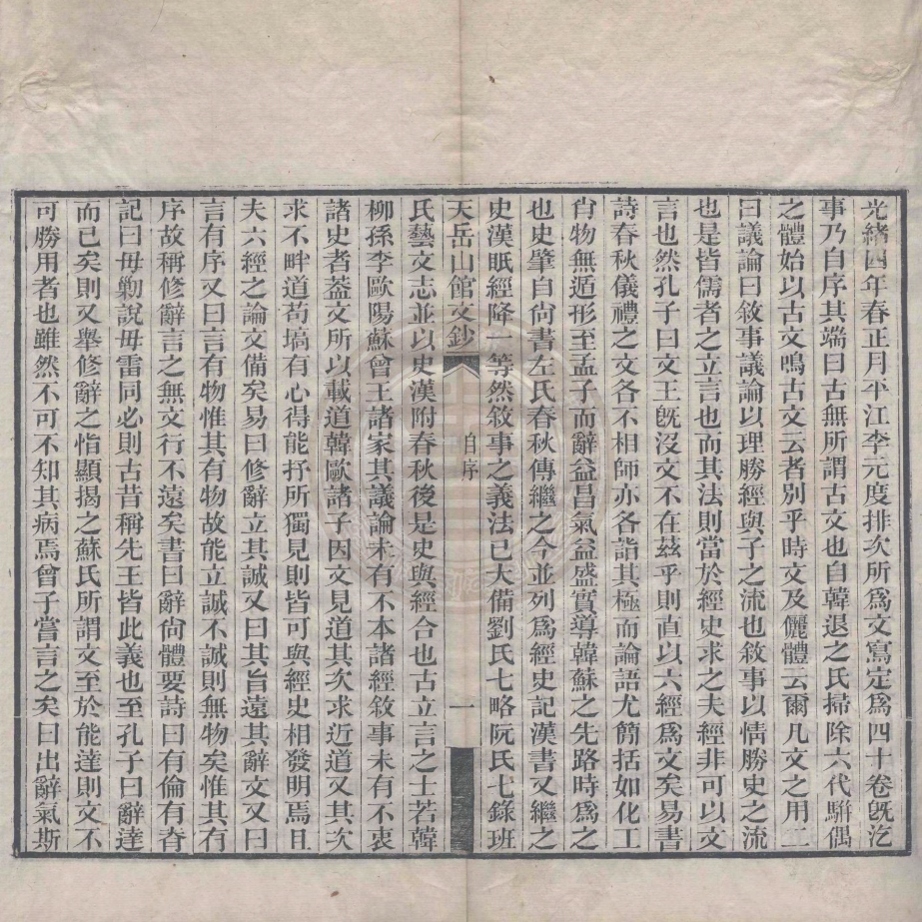 光緒四年春正月平江李元度排次所爲文寫定爲四十卷旣汔
事乃自序其端曰古無所謂古文也自韓退之氏掃除六代駢偶
之體始以古文鳴古文云者別乎時文及儷體云爾凡文之用二
曰議論曰敘事議論以理勝經與子之流也敘事以情勝史之流
也是皆儒者之立言也而其法則當於經史求之夫經非可以文
言也然孔子曰文王旣沒文不在茲乎則直以六經爲文矣易書
詩春秋儀禮之文各不相師亦各詣其極而論語尤簡括如化工
肖物無遁形至孟子而辭益昌氣益盛實導韓蘇之先路時爲之
也史肇自尙書左氏春秋傳繼之今並列爲經史記漢書又繼之
史漢眂經降一等然敘事之義法已大備劉氏七略阮氏七錄班
天岳山館文鈔 自序 一
氏藝文志並以史漢附春秋後是史與經合也古立言之士若韓
柳孫李歐陽蘇曾王諸家其議論未有不本諸經敘事未有不衷
諸史者葢文所以載道韓歐諸子因文見道其次求近道又其次
求不畔道苟塙有心得能抒所獨見則皆可與經史相發明焉且
夫六經之論文備矣易曰修辭立其誠又曰其旨遠其辭文又曰
言有序又曰言有物惟其有物故能立誠不誠則無物矣惟其有
序故稱修辭言之無文行不遠矣書曰辭尙體要詩曰有倫有脊
記曰毋勦說毋雷同必則古昔稱先王皆此義也至孔子曰辭達
而已矣則又舉修辭之恉顯揭之蘇氏所謂文至於能達則文不
可勝用者也雖然不可不知其病焉曾子嘗言之矣曰出辭氣斯